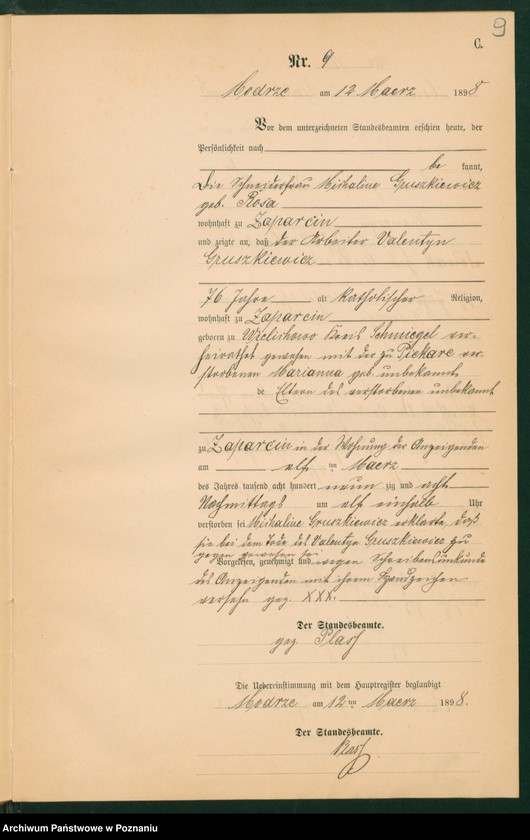 9
C.
Nr. 9
Modrze am 12 Maerz 1898
Vor dem unterzeichneten Standesbeamten erschien heute, der
Persönlichkeit nach
be kannt,
die Schneiderfrau Michaline Gruszkiewicz
geb. Rosa
wohnhaft zu Zaparcin
und zeigte an, daß der Arbeiter Valentyn
Gruszkiewicz
76 Jahre alt katholischer Religion,
wohnhaft zu Zaparcin
geboren zu Wielichowo Kreis Schmiegel ver-
heirathet gewesen mit der zu Piekare ver-
storbenen Marianna geb. unbekannt
de Eltern des verstorbenen unbekannt
zu Zaparcin in der Wohnung der Anzeigenden
am elf ten Maerz
des Jahres tausend acht hundert neun zig und acht
Nachmittags um elf einhalb Uhr
verstorben sei Michaline Gruszkiewicz erklarte, daß
sie bei dem Tode des Valentyn Gruszkiewicz zu
gegen gewesen sei
Vorgelesen, genehmigt und wegen Schreibensunkunde
des Anzeigenden mit ihrem Handzeichen
versehn gez. XXX.
Der Standesbeamte.
gez. Plach
Die Uebereinstimmung mit dem Hauptregister beglaubigt
Modrze am 12ten Maerz 1898.
Der Standesbeamte.
Plach
Archiwum Państwowe w Poznaniu